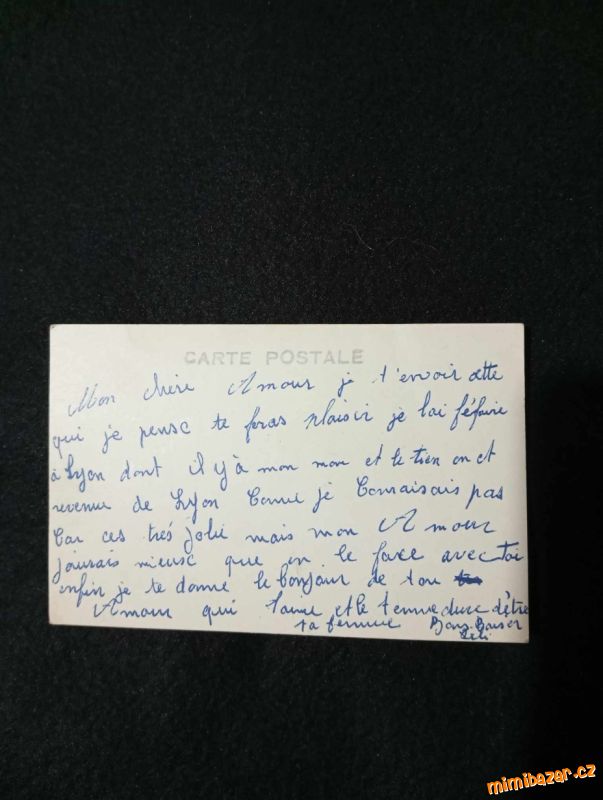 CARTE POSTALE
Mon chère Amour je t'envoir cette
qui je pense te feras plaisir je lai féfaire
à Lyon dont il y'à mon mon et le tien on et
revenue de Lyon Comme je Connaisais pas
Car ces très jolie mais mon Amour
j'aurais mieuse que on le face avec toi
enfin je te donne le bonjour de ton
Amour qui t'aime et le d'être
ta femme Bons Baiser
mimibazar.cz